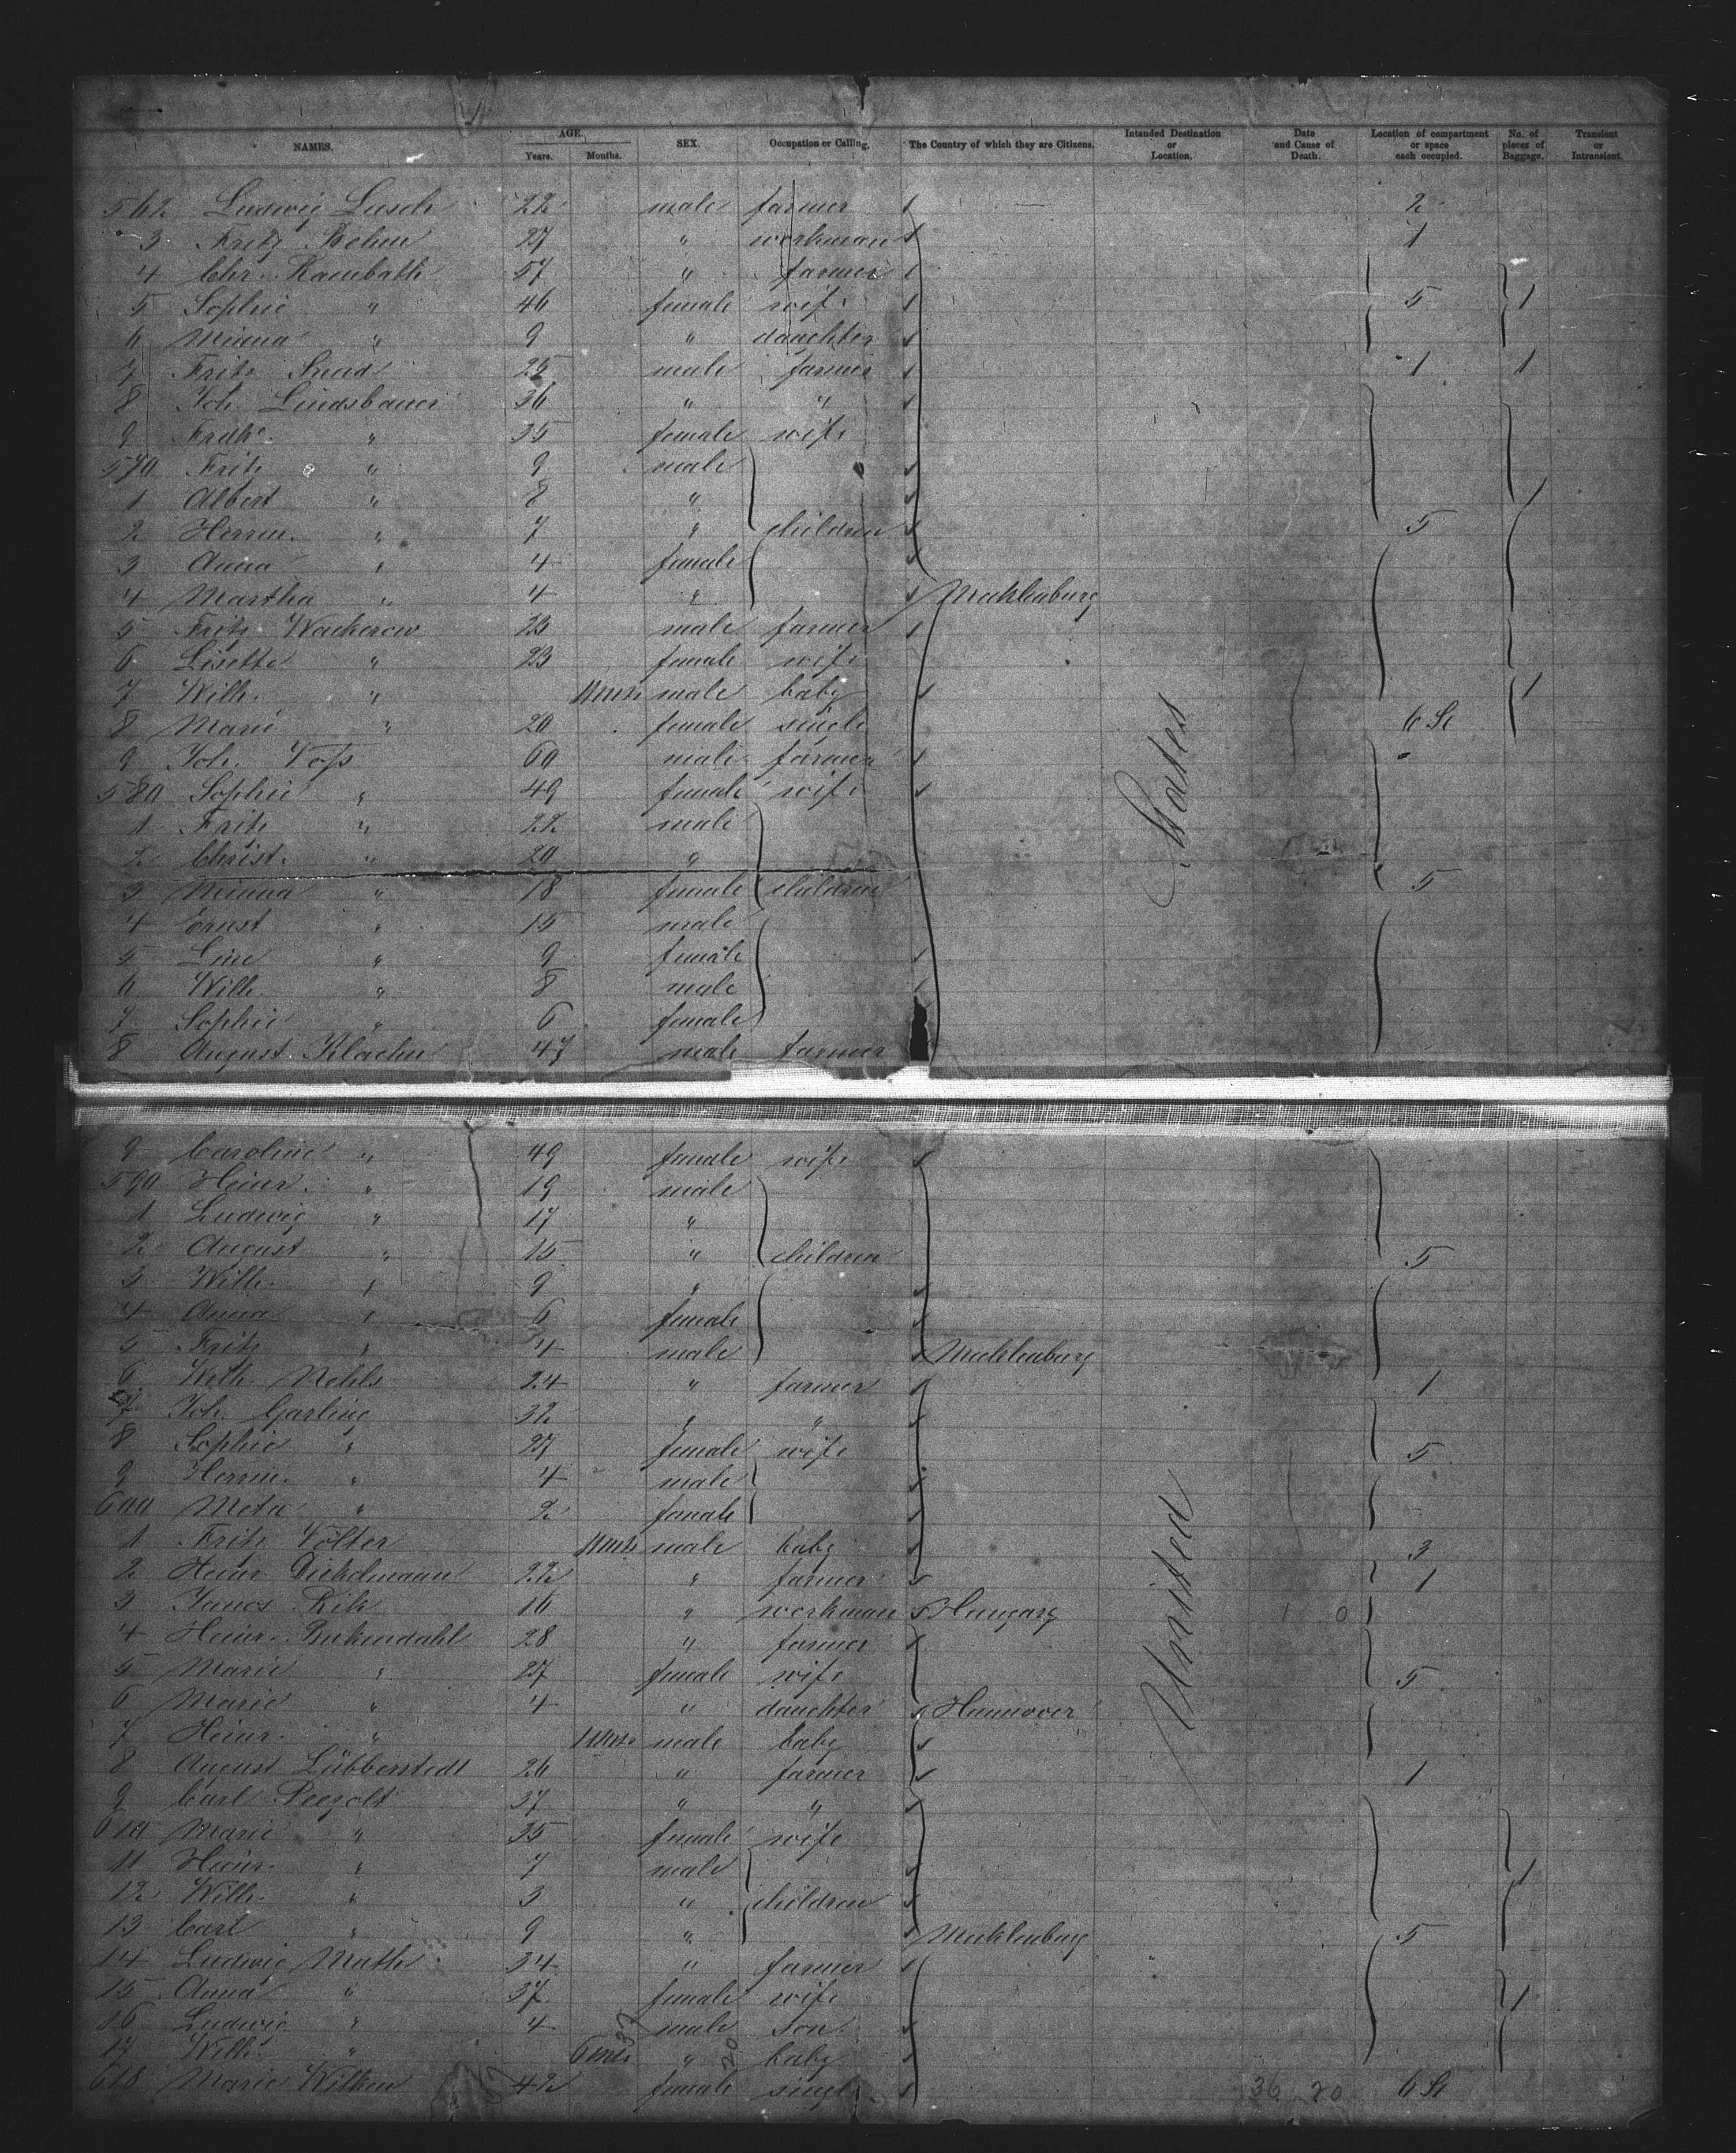 NAMES. AGE. Years. Months. SEX. Occupation or Calling. The Country of which they are Citizens. Intended Destination or Location. Date and Cause of Death. Location of compartment or space each occupied. No. of pieces of Baggage. Transient or Intransient.
562 Ludwig Lusch 22 male farmer 2
3 Fritz Behm 27 " workman 1
4 Chr. Rambath 57 " farmer
5 Sophie " 46 female wife 5 1
6 Minna " 9 " daughter
7 Fritz 25 male farmer 1 1
8 Joh. Lindsbauer 36 " "
9 Fredke. " 35 female wife
570 Fritz " 9 male
1 Albert " 8 " 1
2 Herrm. " 7 " children 5
3 Anna " 4 female
4 Martha " 4 " Mecklenburg
5 Fritz Wackerow 23 male farmer
6 Lisette " 23 female wife
7 Wilh. " 11 mts male baby 1
8 Marie " 20 female single 6 St
9 Joh. Voss 60 male farmer
580 Sophie " 49 female wife
1 Fritz " 22 male
2 Christ. " 20 "
3 Minna " 18 female children 5
4 Ernst " 15 male
5 Line " 9 female
6 Wilh. " 8 male
7 Sophie " 6 female
8 August Klaehn 47 male farmer
9 Caroline " 49 female wife
590 Heinr. " 19 male
1 Ludwig " 17 "
2 August " 15 " children 5
3 Wilh. " 9 "
4 Anna " 6 female
5 Fritz " 4 male Mecklenburg
6 Wilh. Nehls 24 " farmer 1
7 Joh. Garling 32 " "
8 Sophie " 27 female wife 5
9 Herrm. " 4 male
600 Meta " 2 female
1 Fritz Völter 11 mts male baby 3
2 Heinr. Dickelmann 22 " farmer 1
3 Janos Rik 16 " workman Hungary 1 0
4 Heinr. Birkendahl 28 " farmer
5 Marie " 27 female wife 5
6 Marie " 4 " daughter Hannover
7 Heinr. " 11 mts male baby
8 August Lübberstedt 26 " farmer 1
9 Carl Peezolt 37 " "
610 Marie " 35 female wife
11 Heinr. " 7 male 1
12 Wilh. " 3 " children
13 Carl " 9 " Mecklenburg 5
14 Ludwig Math 34 " farmer
15 Anna " 37 female wife 1
16 Ludwig " 4 male son
17 Wilh. " 6 mts " baby
618 Marie Witken 42 female single 36 20 6 St
United States